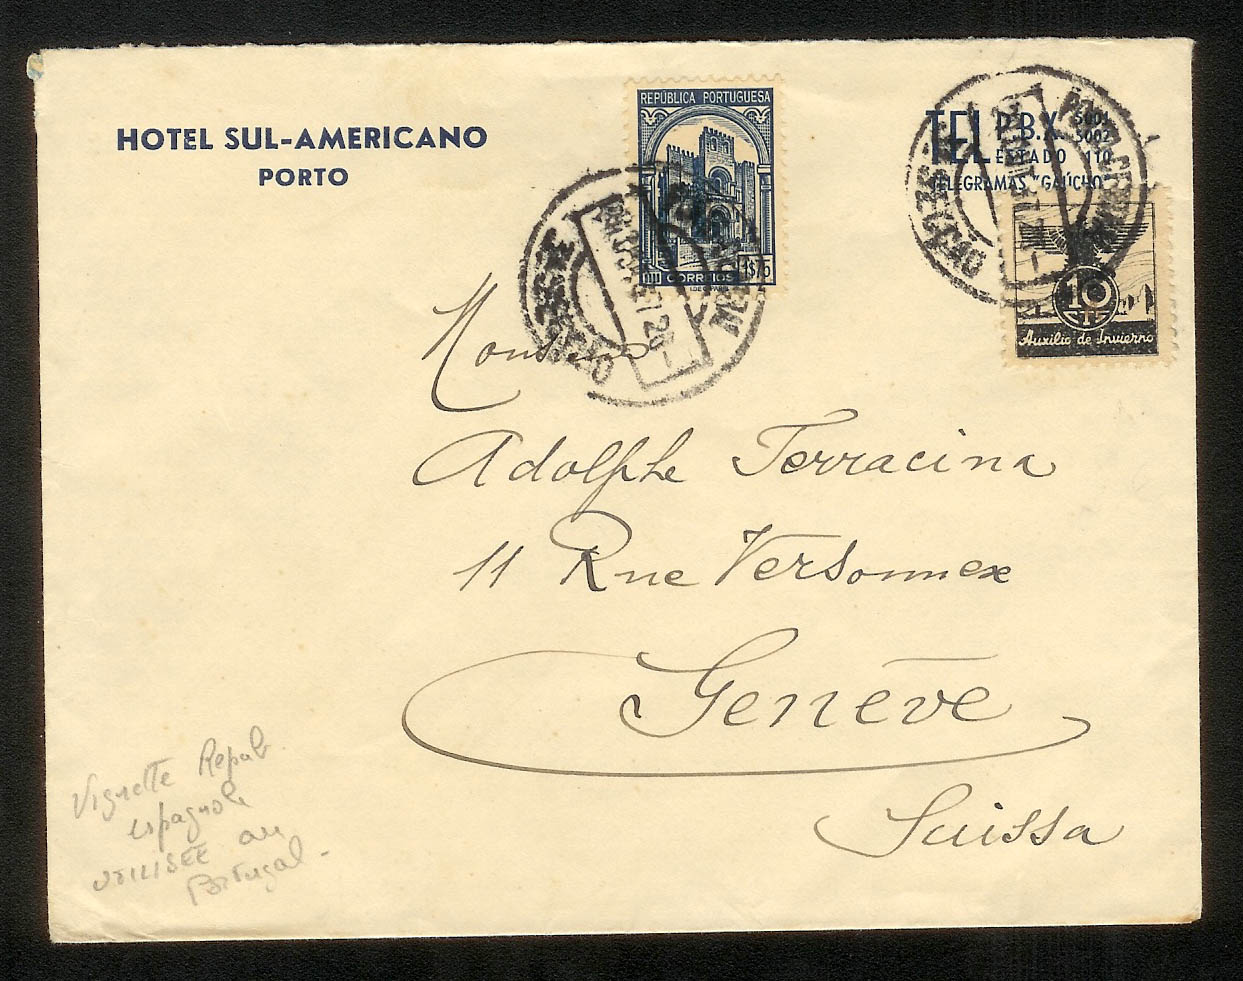 HOTEL SUL-AMERICANO
PORTO
REPÚBLICA PORTUGUESA
CORREIOS
1$75
TEL P.B.X. 5001 5002
ESTADO 110
TELEGRAMAS "GAÚCHO"
10
Auxilio de Invierno
Monsieur
Adolphe Terracina
11 Rue Versonnex
Genève
Suissa
Vignette Repub
espagnole
UTILISÉE au
Portugal -